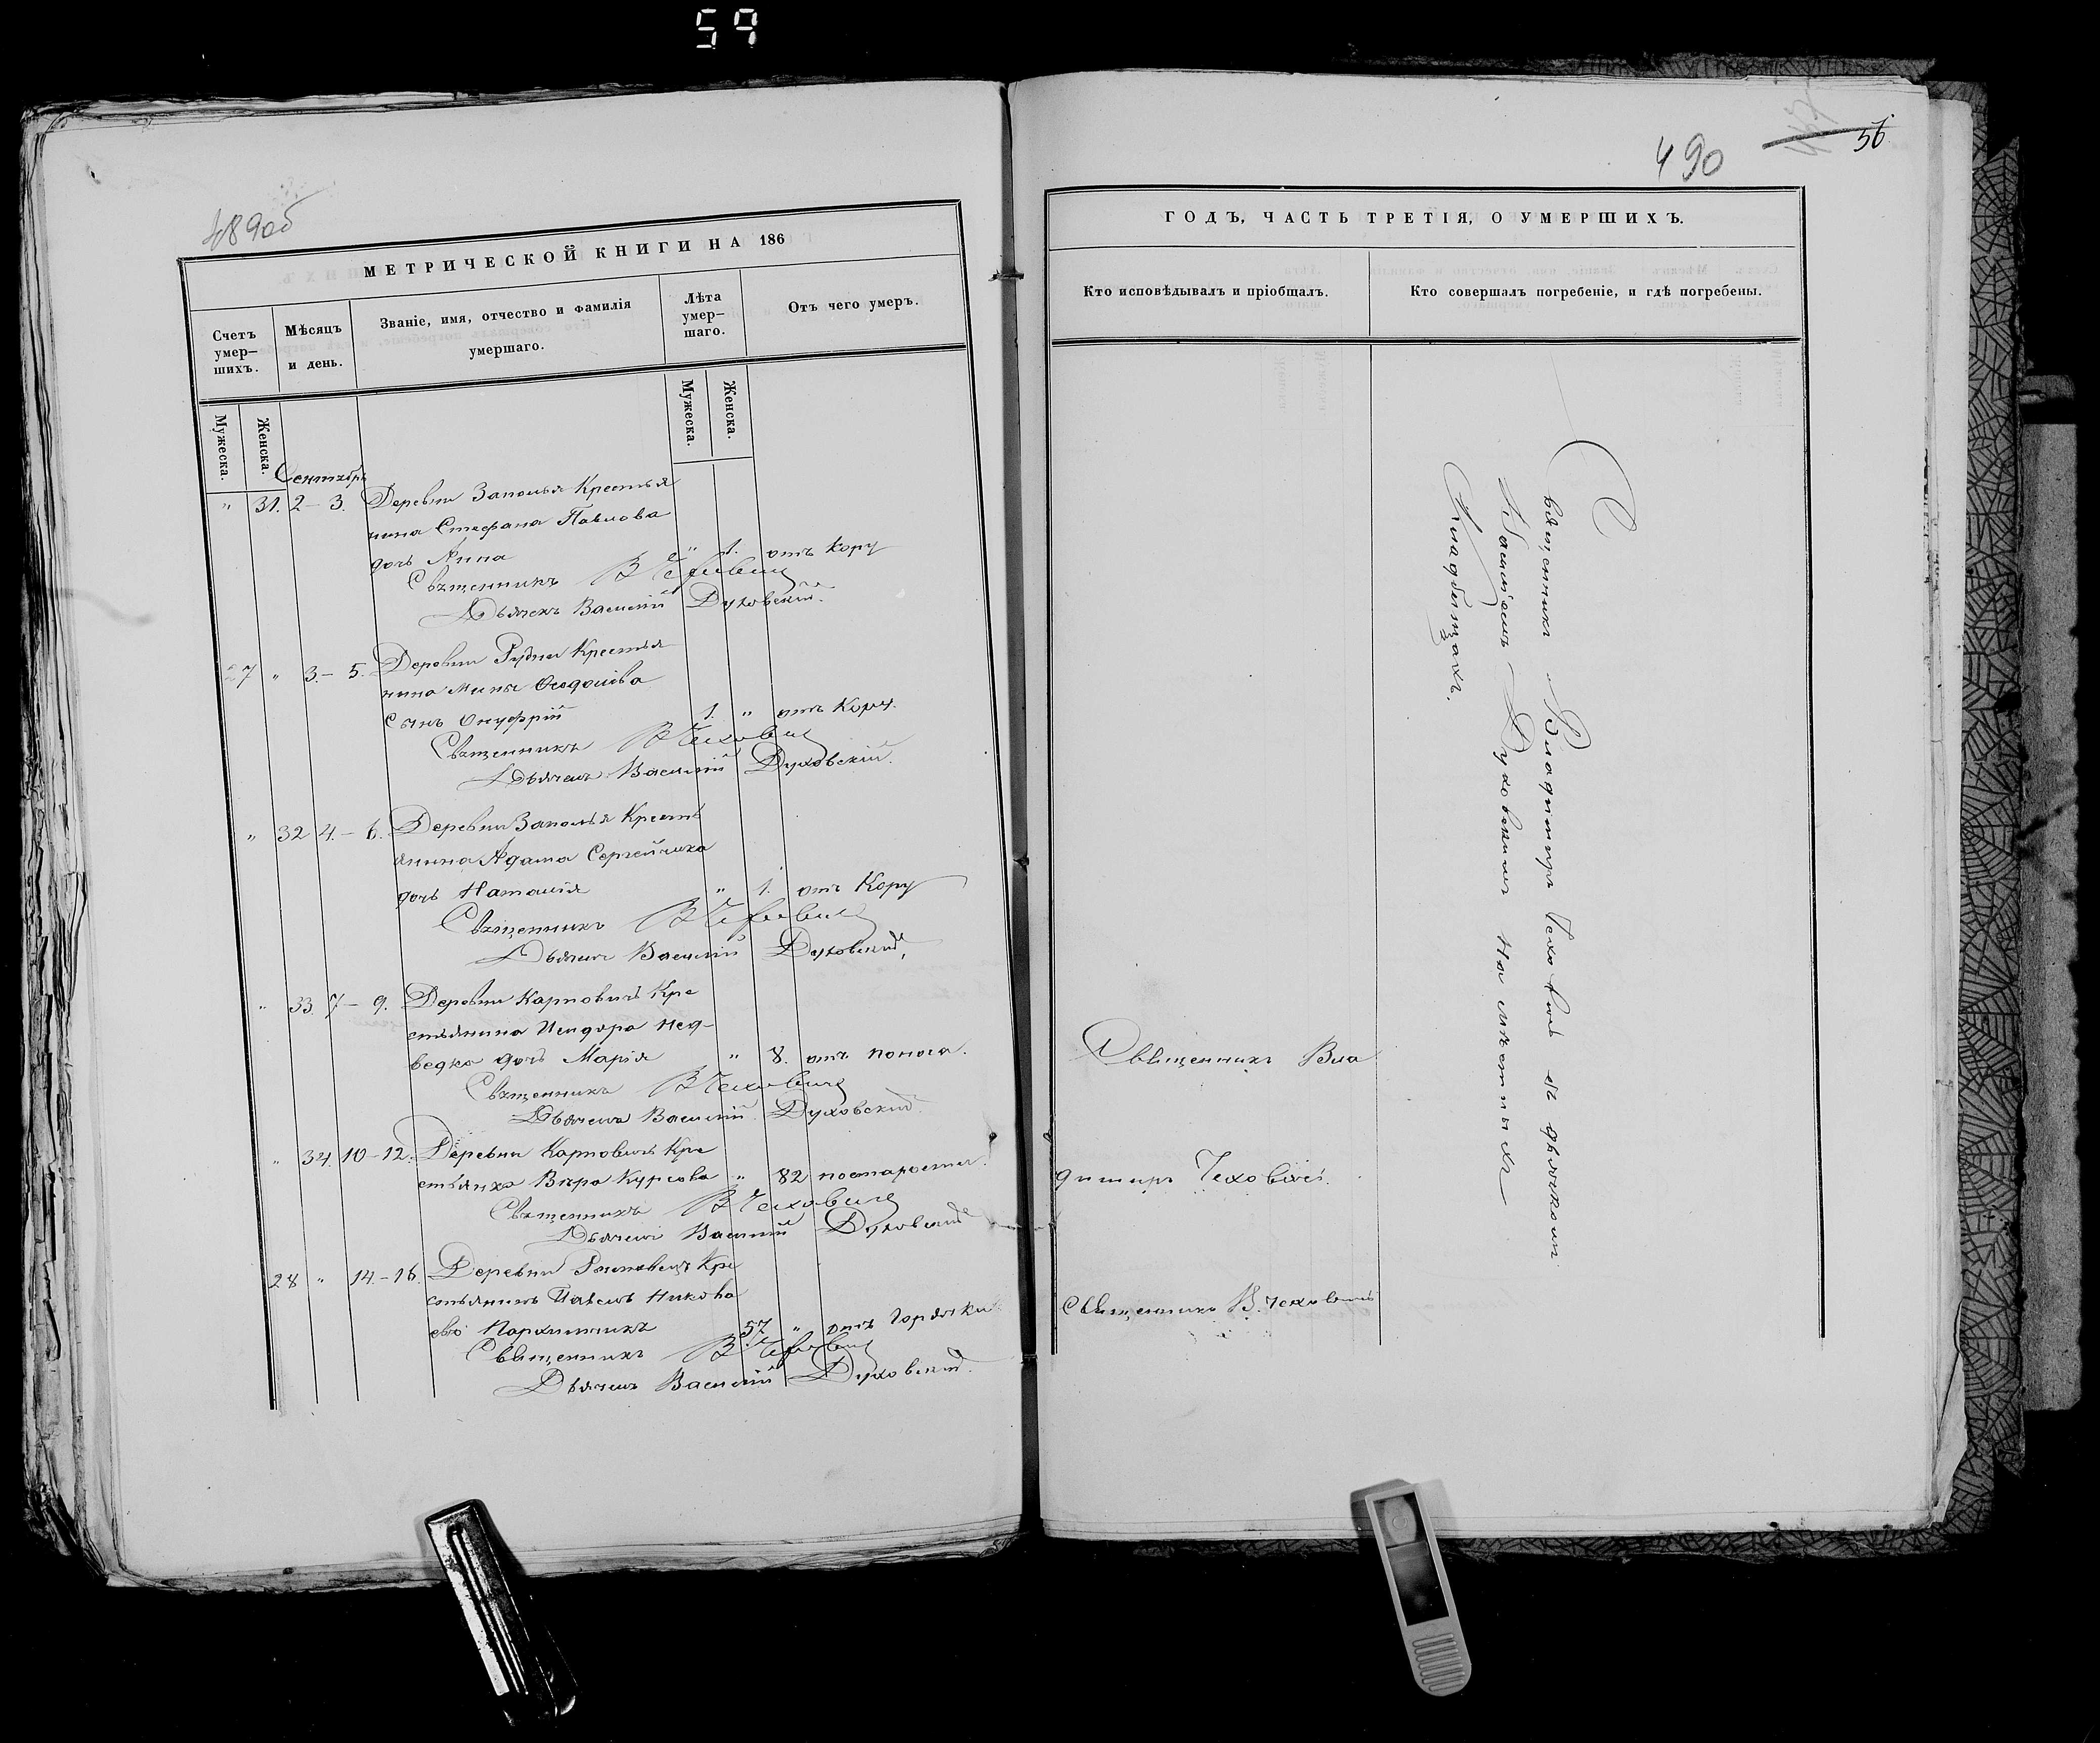 59
489об
МЕТРИЧЕСКОЙ КНИГИ НА 186
Счетъ умер-шихъ.
Мѣсяцъ и день.
Званіе, имя, отчество и фамилія умершаго.
Лѣта умер-шаго.
Отъ чего умеръ.
Мужеска.
Женска.
Мужеска.
Женска.
Сентябрь
" 31. 2 - 3. Деревни Заполья Крестья
нина Стефана Павлова
дочь Анна " 1. отъ Кору
Священникъ В Чеховичъ
Дьячекъ Василій Духовский.
27 " 3. - 5. Деревни Рудни Крестья
нина Мины
Сынъ Онуфрій 1. " отъ Кору.
Священникъ В Чеховичъ
Дьячекъ Василій Духовскій.
" 32 4. - 6. Деревни Заполья Кресть
янина Адама Сергейчика
дочь Наталія " 1. отъ Кору
Священникъ В Чеховичъ
Дьячекъ Василій Духовский
" 33. 7 - 9. Деревни Карповичъ Кре
стьянина Исидора Мед-
ведко дочь Марія " 8. отъ поноса.
Священникъ В Чеховичъ
Дьячекъ Василій Духовский.
" 34. 10 - 12. Деревни Карповичъ Кре
стьянка Вѣра Курсова " 82 по старости.
Священникъ В Чеховичъ
Дьячекъ Василій Духовский
28 " 14. - 16. Деревни Кре
стьянинъ Павелъ
57 " отъ Горячки
Священникъ В Чеховичъ
Дьячекъ Василій Духовский.
56
490
ГОДЪ, ЧАСТЬ ТРЕТІЯ, О УМЕРШИХЪ.
Кто исповѣдывалъ и пріобщалъ.
Кто совершалъ погребеніе, и гдѣ погребены.
Священникъ Владимиръ Чеховичъ съ дьячкомъ
Василіемъ Духовскимъ на мѣстныхъ
Кладбищахъ.
Священникъ Вла
димиръ Чеховичъ.
Священникъ В. Чеховичъ